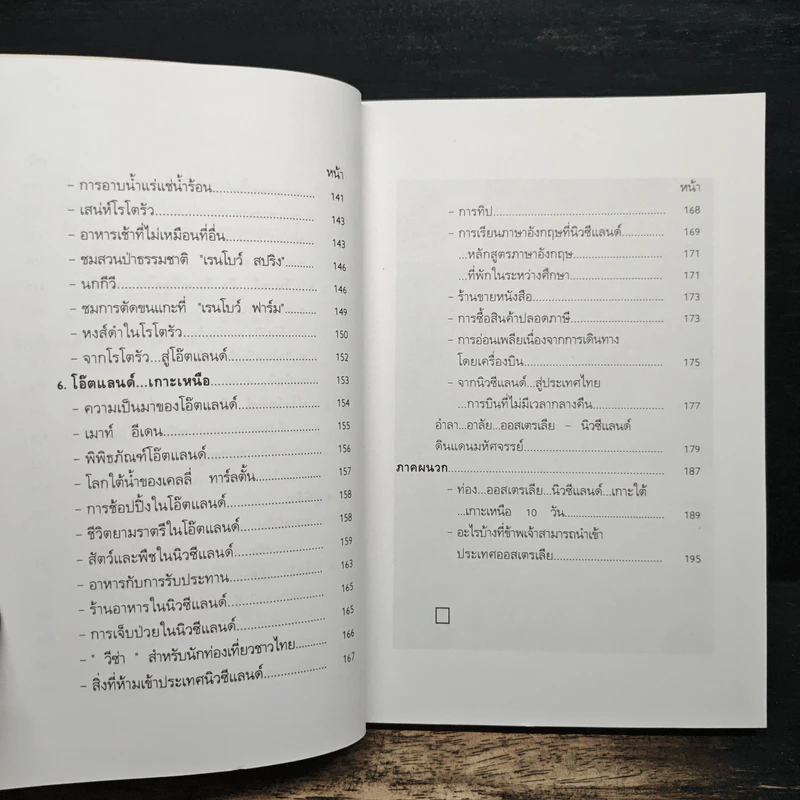 หน้า
- การอาบน้ำแร่แช่น้ำร้อน.......................... 141
- เสน่ห์โรโตรัว.......................................... 143
- อาหารเช้าที่ไม่เหมือนที่อื่น........................ 143
- ชมสวนป่าธรรมชาติ "เรนโบว์ สปริง"....... 146
- นกกีวี.................................................... 146
- ชมการตัดขนแกะที่ "เรนโบว์ ฟาร์ม"........ 149
- หงส์ดำในโรโตรัว.................................... 150
- จากโรโตรัว...สู่โอ๊ตแลนด์........................ 152
6. โอ๊ตแลนด์...เกาะเหนือ.......................... 153
- ความเป็นมาของโอ๊ตแลนด์...................... 154
- เมาท์ อีเดน............................................ 155
- พิพิธภัณฑ์โอ๊ตแลนด์.............................. 156
- โลกใต้น้ำของเคลลี่ ทาร์ลตั้น.................. 157
- การช้อปปิ้งในโอ๊ตแลนด์.......................... 158
- ชีวิตยามราตรีในโอ๊ตแลนด์...................... 158
- สัตว์และพืชในนิวซีแลนด์........................ 159
- อาหารกับการรับประทาน........................ 163
- ร้านอาหารในนิวซีแลนด์.......................... 165
- การเจ็บป่วยในนิวซีแลนด์........................ 165
- " วีซ่า " สำหรับนักท่องเที่ยวชาวไทย........ 166
- สิ่งที่ห้ามเข้าประเทศนิวซีแลนด์................ 167
หน้า
- การทิป.................................................. 168
- การเรียนภาษาอังกฤษที่นิวซีแลนด์............ 169
...หลักสูตรภาษาอังกฤษ............................ 171
...ที่พักในระหว่างศึกษา............................ 171
- ร้านขายหนังสือ...................................... 173
- การซื้อสินค้าปลอดภาษี.......................... 173
- การอ่อนเพลียเนื่องจากการเดินทาง
โดยเครื่องบิน.......................................... 175
- จากนิวซีแลนด์...สู่ประเทศไทย
...การบินที่ไม่มีเวลากลางคืน.................... 177
อำลา...อาลัย...ออสเตรเลีย - นิวซีแลนด์
ดินแดนมหัศจรรย์.................................... 179
ภาคผนวก................................................ 187
- ท่อง...ออสเตรเลีย...นิวซีแลนด์...เกาะใต้
...เกาะเหนือ 10 วัน................................ 189
- อะไรบ้างที่ข้าพเจ้าสามารถนำเข้า
ประเทศออสเตรเลีย.................................. 195